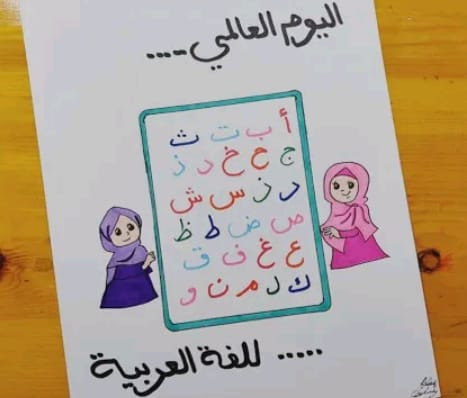 اليوم العالمي .....
أ ب ت ث
ج ح خ د ذ
ر ز س ش
ص ض ط ظ
ع غ ف ق
ك ل م ن و
..... للغة العربية